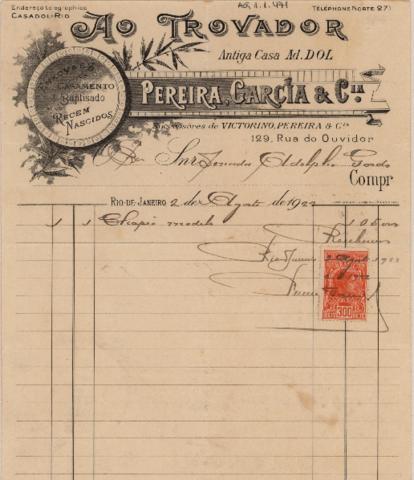 Endereço telegraphico
CASADOL-RIO
TELEPHONE NORTE 871
AO TROVADOR
Antiga Casa Ad. DOL
CASAMENTO
& Baptisado
RECEM
NASCIDOS
PEREIRA, GARCÍA & CIA
Successores de VICTORINO, PEREIRA & Cia
129, Rua do Ouvidor
Snr Senador Adolpho Gordo
Compr
RIO DE JANEIRO 2 de Agosto de 1922
1 1 Chapéo modelo
Recebemos
Rio de Janeiro
300
REIS